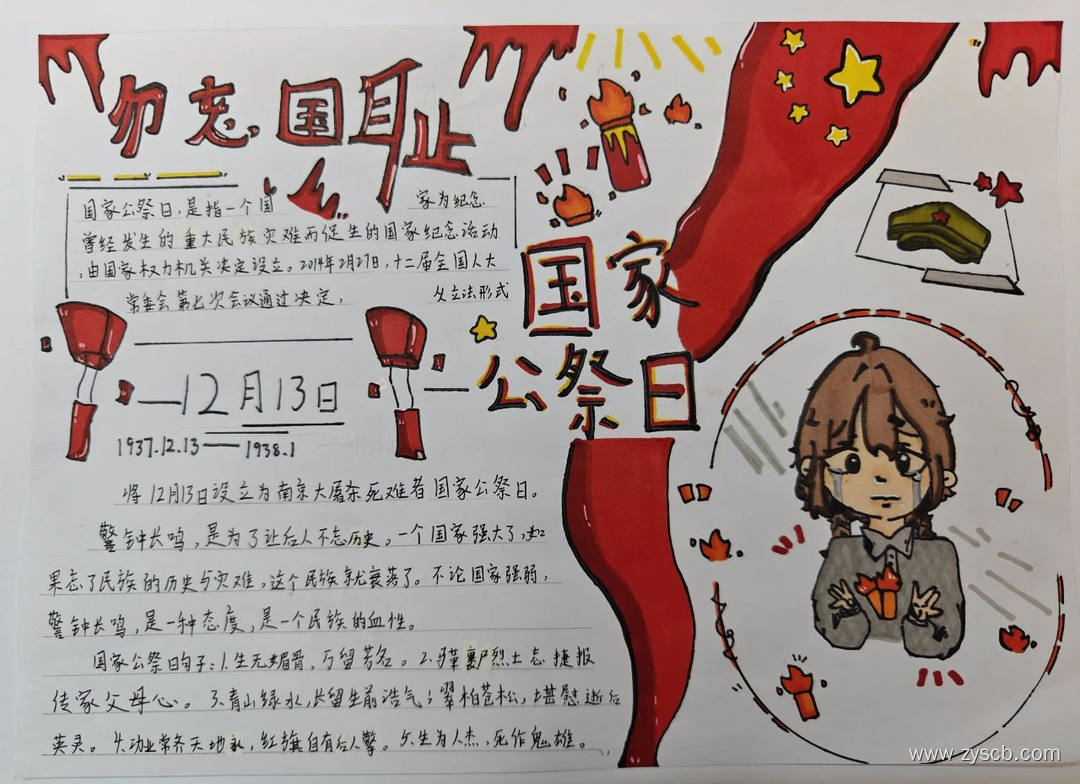 勿忘国耻
国家公祭日,是指一个国家为纪念
曾经发生的重大民族灾难而促生的国家纪念活动
,由国家权力机关决定设立。2014年2月27日,十二届全国人大
常委会第七次会议通过决定,以立法形式
国家
公祭日
—12月13日—
1937.12.13—1938.1
将12月13日设立为南京大屠杀死难者国家公祭日。
警钟长鸣,是为了让后人不忘历史,一个国家强大了,如
果忘了民族的历史与灾难,这个民族就衰落了。不论国家强弱,
警钟长鸣,是一种态度,是一个民族的血性。
国家公祭日句子:1.人生无媚骨,万留芳名。2.马革裹尸烈士志捷报
传家父母心。3.青山绿水,长留生前浩气;翠柏苍松,堪慰逝后
英灵。4.功业常齐天地永,红旗自有后人擎。5.生为人杰,死作鬼雄。
www.zyscb.com